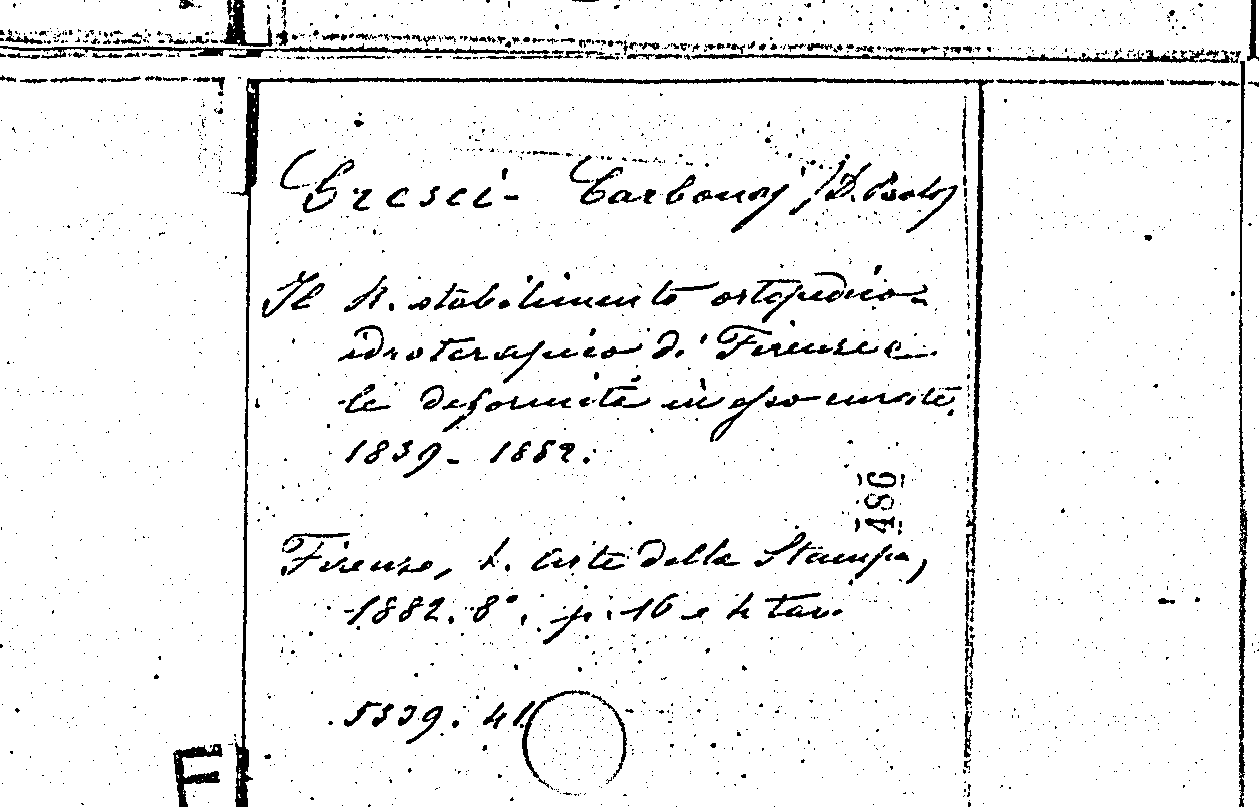 Cresci-Carbonai (D. Paolo)
Il R. stabilimento ortopedico-
idroterapico di Firenze e
le deformità in esso curate.
1839-1882.
486
Firenze, t. Arte della Stampa,
1882. 8°. p. 16 e 4 tav.
5339. 41